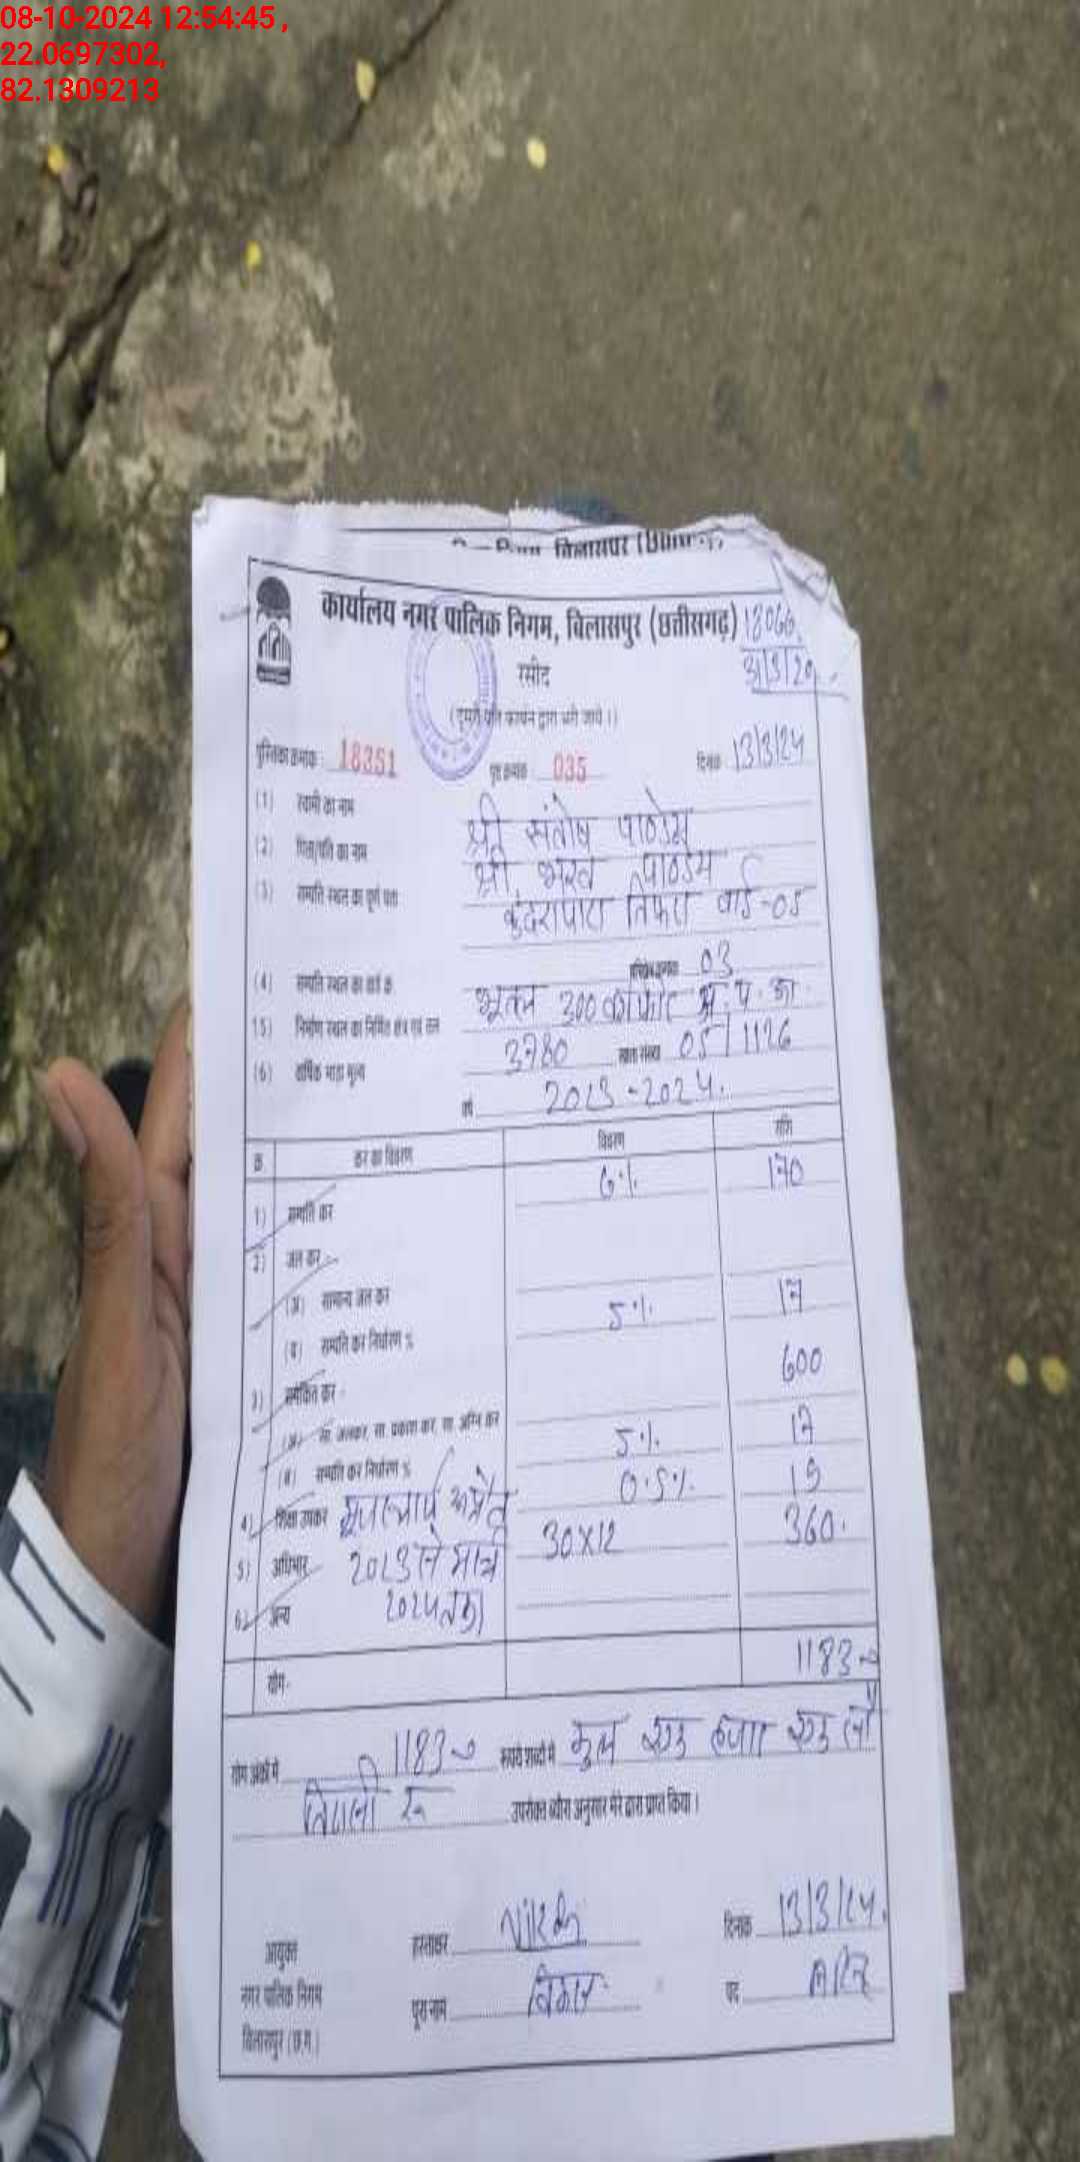 08-10-2024 12:54:45 ,
22.0697302,
82.1309213
बिलासपुर
कार्यालय नगर पालिक निगम, बिलासपुर (छत्तीसगढ़)
रसीद
पुस्तिका क्रमांक 18351 पृष्ठ क्रमांक 035 दिनांक 13/3/24
(1) स्वामी का नाम श्री संतोष पाण्डेय
(2) पिता/पति का नाम श्री भरव पाण्डेय
(3) सम्पत्ति स्थल का पूर्ण पता कुंदरापारा तिफरा वार्ड-05
(4) सम्पत्ति स्थल का वार्ड क्र. 03
(5) निर्माण स्थल का निर्मित क्षेत्र एवं तल भूतल 300
(6) वार्षिक भाड़ा मूल्य 3780 खाता संख्या 05/1126
वर्ष 2023-2024.
क्र. कर का विवरण विवरण राशि
1) सम्पत्ति कर 6% 170
2) जल कर
(अ) सामान्य जल कर
(ब) सम्पत्ति कर निर्धारण % 5% 17
3) समेकित कर 600
(अ) सा. जलकर, सा. प्रकाश कर, सा. अग्नि कर
(ब) सम्पत्ति कर निर्धारण % 5% 17
4) शिक्षा उपकर अप्रैल 0.5% 19
5) अधिभार 2023 से मार्च 30X12 360.
6) अन्य 2024 तक
योग- 1183
योग अंकों में 1183 रूपये शब्दों में कुल एक हजार एक सौ
तिरासी रू उपरोक्त ब्यौरा अनुसार मेरे द्वारा प्राप्त किया।
आयुक्त हस्ताक्षर दिनांक 13/3/24.
नगर पालिक निगम पूरा नाम विकास पद
बिलासपुर (छ.ग.)